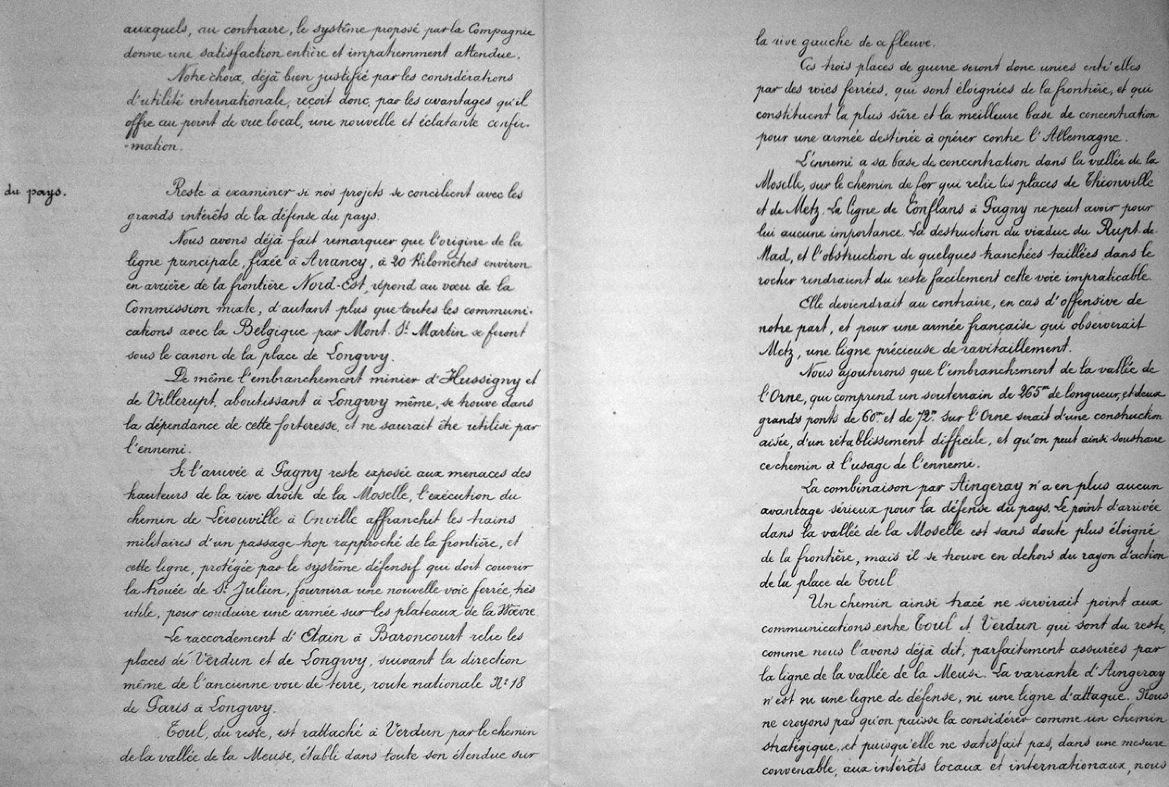 auxquels, au contraire, le système proposé par la Compagnie
donne une satisfaction entière et impatiemment attendue.
Notre choix, déjà bien justifié par les considérations
d'utilité internationale, reçoit donc, par les avantages qu'il
offre au point de vue local, une nouvelle et éclatante confir-
-mation.
du pays.
Reste à examiner si nos projets se concilient avec les
grands intérêts de la défense du pays.
Nous avons déjà fait remarquer que l'origine de la
ligne principale, fixée à Arrancy, à 20 Kilomètres environ
en arrière de la frontière Nord-Est, répond au vœu de la
Commission mixte, d'autant plus que toutes les communi-
cations avec la Belgique par Mont. St Martin se feront
sous le canon de la place de Longwy.
De même l'embranchement minier d'Hussigny et
de Villerupt, aboutissant à Longwy même, se trouve dans
la dépendance de cette forteresse, et ne saurait être utilisé par
l'ennemi.
Si l'arrivée à Pagny reste exposée aux menaces des
hauteurs de la rive droite de la Moselle, l'exécution du
chemin de Lérouville à Onville affranchit les trains
militaires d'un passage trop rapproché de la frontière, et
cette ligne, protégée par le système défensif qui doit couvrir
la trouée de St Julien, fournira une nouvelle voie ferrée, très
utile, pour conduire une armée sur les plateaux de la Woëvre
Le raccordement d'Etain à Baroncourt relie les
places de Verdun et de Longwy, suivant la direction
même de l'ancienne voie de terre, route nationale No 18
de Paris à Longwy.
Toul, du reste, est rattaché à Verdun par le chemin
de la vallée de la Meuse, établi dans toute son étendue sur
la rive gauche de ce fleuve.
Ces trois places de guerre seront donc unies entr'elles
par des voies ferrées, qui sont éloignées de la frontière, et qui
constituent la plus sûre et la meilleure base de concentration
pour une armée destinée à opérer contre l'Allemagne.
L'ennemi a sa base de concentration dans la vallée de la
Moselle, sur le chemin de fer qui relie les places de Thionville
et de Metz. La ligne de Conflans à Pagny ne peut avoir pour
lui aucune importance. La destruction du viaduc du Rupt de
Mad, et l'obstruction de quelques tranchées taillées dans le
rocher rendraient du reste facilement cette voie impraticable.
Elle deviendrait au contraire, en cas d'offensive de
notre part, et pour une armée française qui observerait
Metz, une ligne précieuse de ravitaillement.
Nous ajouterons que l'embranchement de la vallée de
l'Orne, qui comprend un souterrain de 265m de longueur, et deux
grands ponts de 60m et de 72m sur l'Orne serait d'une construction
aisée, d'un rétablissement difficile, et qu'on peut ainsi soustraire
ce chemin à l'usage de l'ennemi.
La combinaison par Aingeray n'a en plus aucun
avantage sérieux pour la défense du pays. Le point d'arrivée
dans la vallée de la Moselle est sans doute plus éloigné
de la frontière, mais il se trouve en dehors du rayon d'action
de la place de Toul
Un chemin ainsi tracé ne servirait point aux
communications entre Toul et Verdun qui sont du reste,
comme nous l'avons déjà dit, parfaitement assurées par
la ligne de la vallée de la Meuse. La variante d'Aingeray
n'est ni une ligne de défense, ni une ligne d'attaque. Nous
ne croyons pas qu'on puisse la considérer comme un chemin
stratégique, et puisqu'elle ne satisfait pas, dans une mesure
convenable, aux intérêts locaux et internationaux, nous